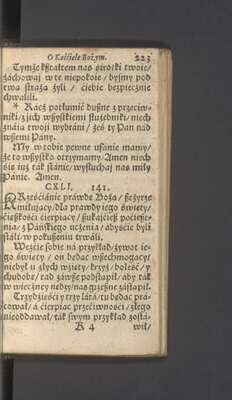 O Kośćiele Bożym. 223
Tymże kształtem nas sirotki twoie/
zachoway w te niepokoie / byśmy pod
twą strażą żyli / ćiebie bezpiecznie
chwalili.
* Racż potłumić dusżne z przeciw-
niki/z jich wszystkiemi służebniki/ niech
znáią twoji wybráni / żeś ty Pan nád
wszemi Pány.
My w tobie pewne ufánie mamy/
że to wszystko otrzymamy. Amen niech
się iuż ták stánie/ wysłuchay nas miły
Pánie. Amen.
CXLI. 141.
KRześćiánie práwdę Bożą / szcżyrze
miłujący/dla prawdy iego święty/
ćieszkośći ćierpiący / szukajćież poćiesze-
nia / z Páńskiego ucżenia / abyśćie byli
stáli/w pokuszeniu trwáli.
Weźćie sobie ná przykład/żywot ie-
go święty / on będąc wszechmogący/
niebył u złych wźięty/krzyż/ boleść / y
chudobę / rad záwsze podstąpił/áby ták
w wiecżney nędzy/nas grzeszne zástąpił.
Trzydźieśći y trzy látá/ tu będąc prá-
cowáł/ á ćierpiąc przećiwnośći / złego
nieoddawał/ ták swym przykład zostá-
K 4 wił/